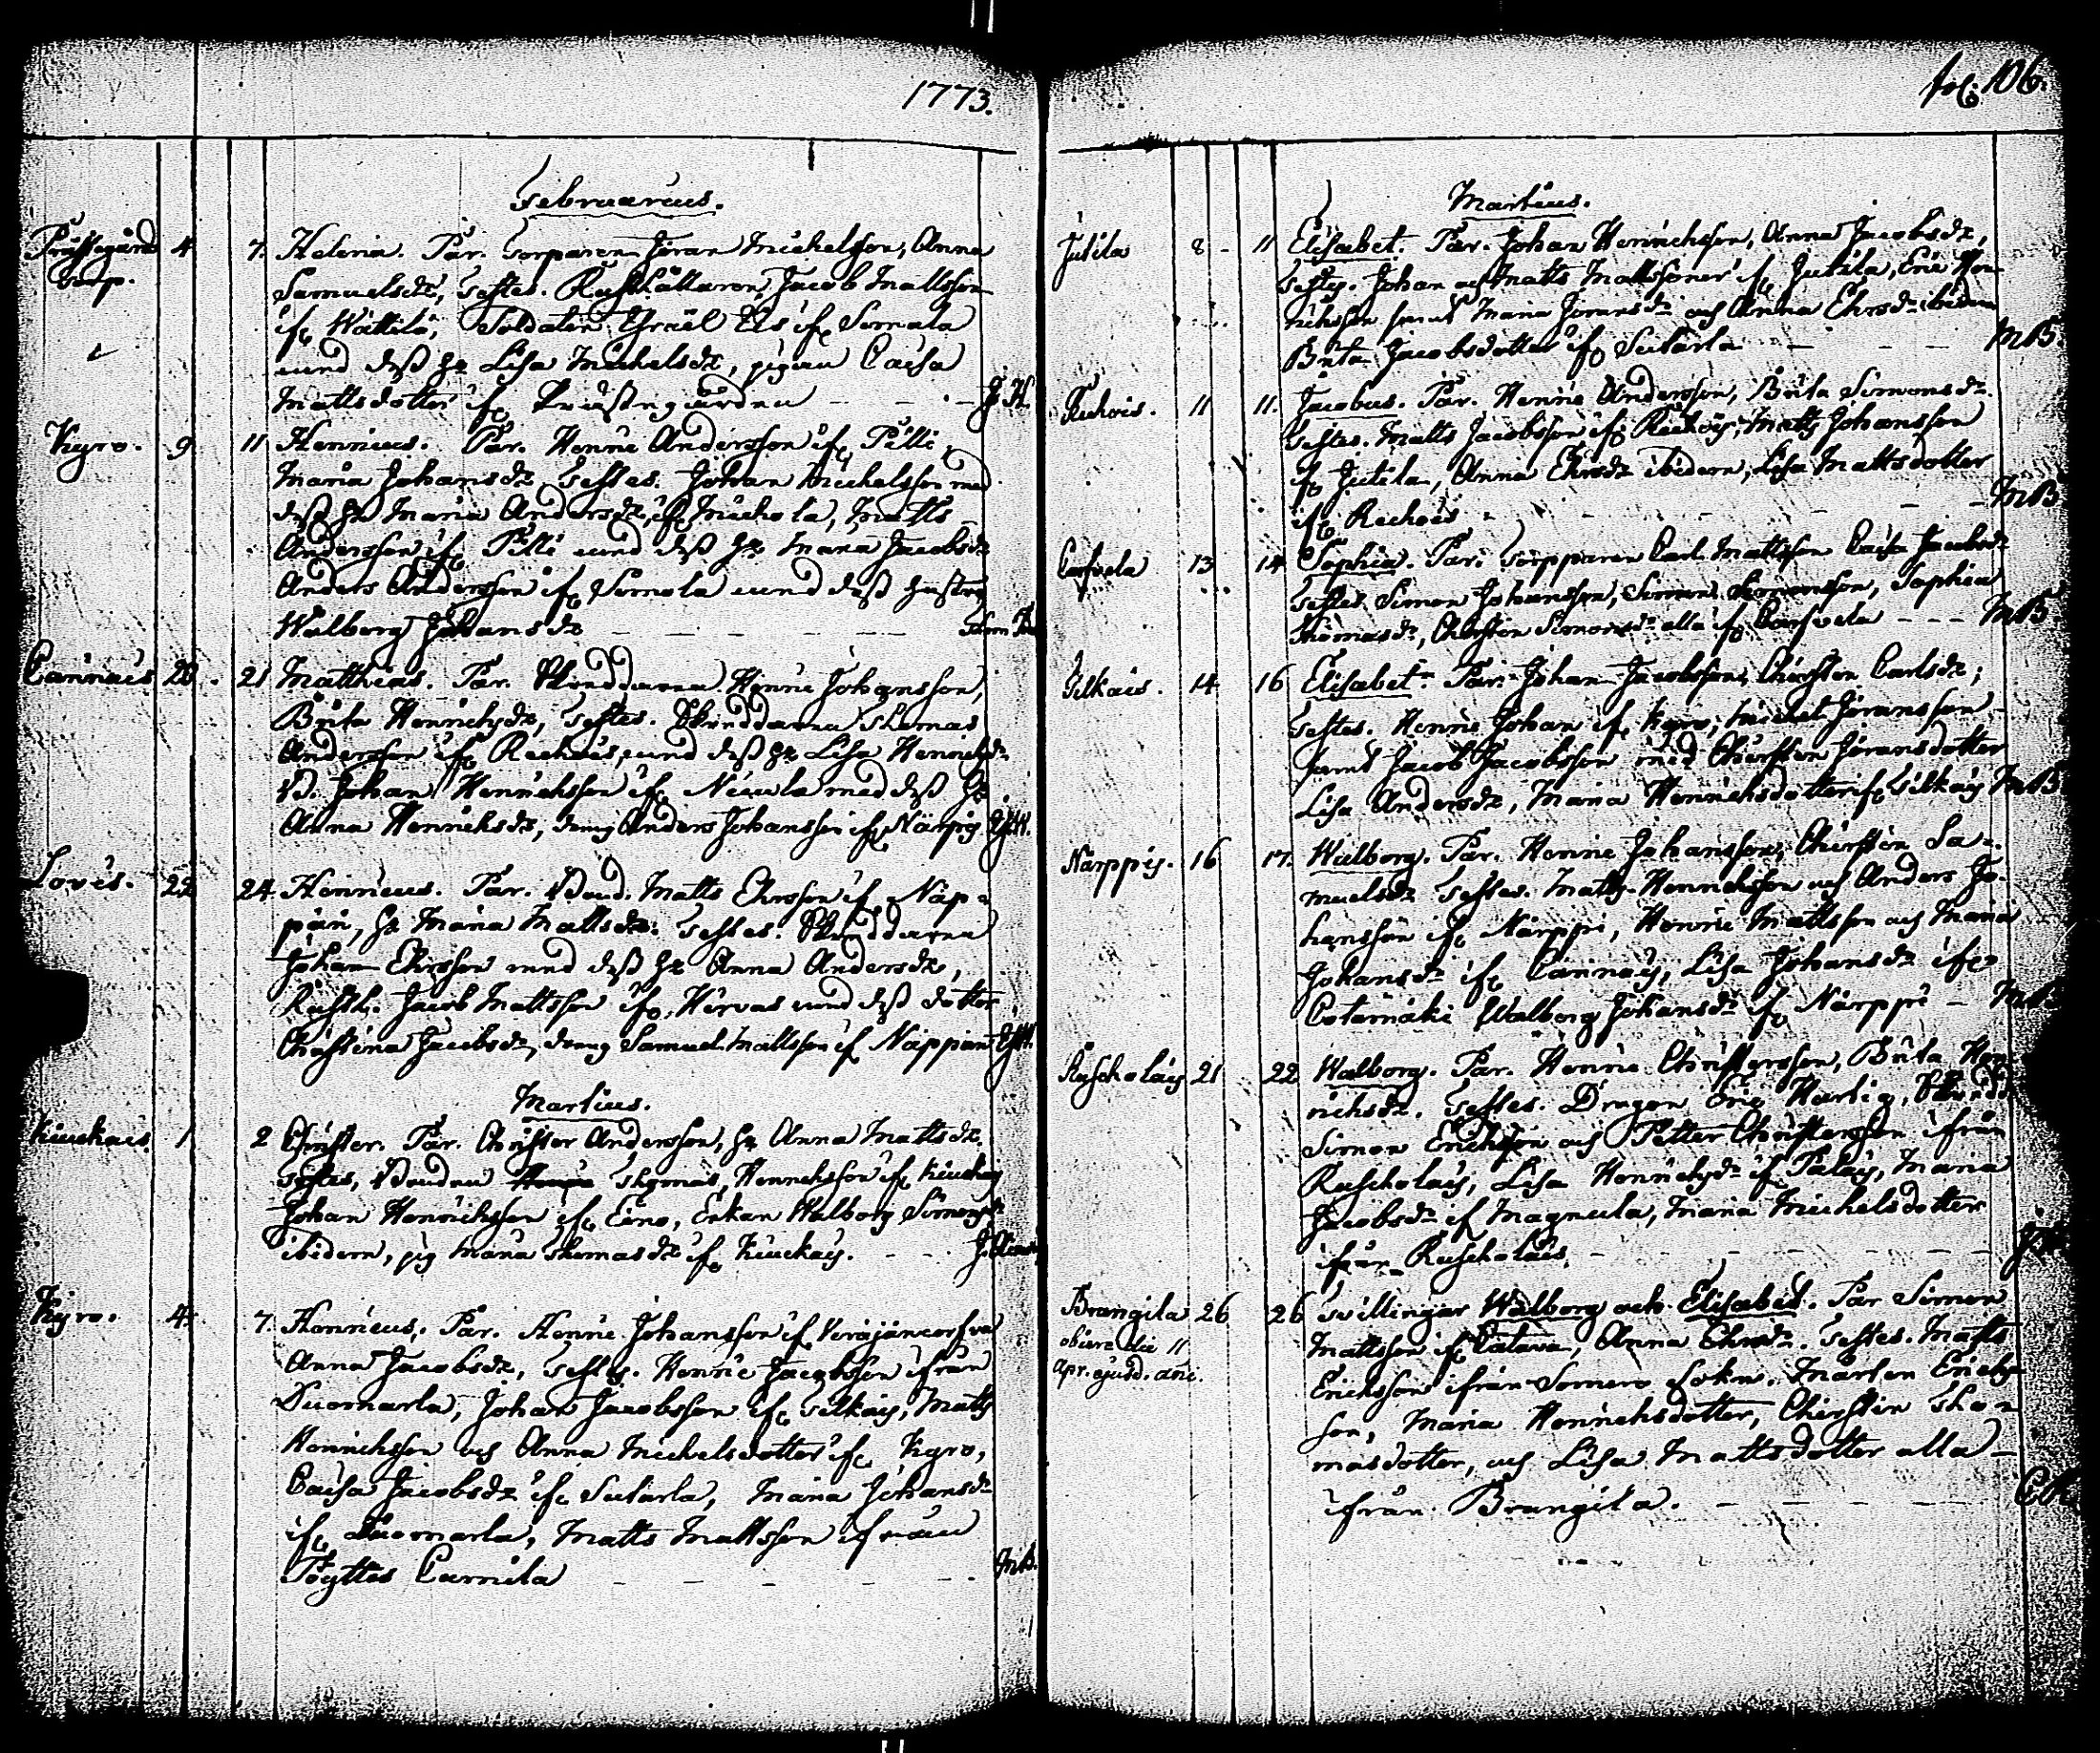 1773.
Februarius.
Prästegårds 4 7. Helena. Par. Torparen Jöran Michelsson, Anna
torp. Samuelsdr, Testes. Rusthållaren Jacob Mattsson
if. Wättilä, Soldaten Israël Els if. Somala
med dess h. Lisa Michelsdr, pigan Caisa
Mattsdotter if. Prästegården - - - J. H.
Kyro. 9 11 Henricus. Par. Henric Andersson if. Pilli,
Maria Johansdr, Testes. Johan Michelsson med
dess h. Maria Andersdr, if. Michola, Matts
Andersson if. Pilli med dess h. Maria Jacobsdr
Anders Andersson if. Somola med dess hustru
Walborg Johansdr - - -
Cannais 20. 21 Matthias. Par. Henric Johansson,
Brita Henrichsdr, Testes. Thomas
Andersson if. Reckois, med dess h. Lisa Henrichsdr
B. Johan Henrichsson if. Niuula med dess h.
Anna Henrichsdr, dreng Anders Johansson if. Närpis
Lovis. 22 24 Henricus. Par. Bond. Matts Ehrsson if. Näp-
pän, h. Maria Mattsdr. Testes.
Johan Ehrsson med dess h. Anna Andersdr,
Rusth. Jacob Mattsson if. Hirvas med dess dotter
Christina Jacobsdr, dreng Samuel Mattsson if. Näppän
Martius.
Kiuckais 1 2 Christer. Par. Christer Andersson, h. Anna Mattsdr.
Testes, Bonden Thomas Henrichsson if. Kiuckais
Johan Henrichsson if. Eino, Enkan Walborg Simonsdr
ibidem, pig Maria Thomasdr if. Kiuckais. - - -
Kyro. 4. 7. Henricus. Par. Henric Johansson if.
Anna Jacobsdr, Testes. Henric Jacobsson ifrån
Suomarla, Johan Jacobsson if. Silkais, Matts
Henrichsson och Anna Michelsdotter if. Kyro,
Caisa Jacobsdr if. Sutarla, Maria Johansdr
if. Suomarla, Matts Mattsson ifrån
Töyttes Carnila - - - M.B.
fol. 106.
Martius.
Jutila 8 - 11 Elisabet. Par. Johan Henrichsson, Anna Jacobsdr,
Testes. Johan och Matts Mattssöner if. Jutila, Eric Hen-
richsson samt Maria Jöransdr och Anna Ehrsdr ibidem
Brita Jacobsdotter if. Sutarla - - - MB.
Rechois. 11 11. Jacobus. Par. Henric Andersson, Brita Simonsdr.
Testes. Matts Jacobsson if. Rechois, Matts Johansson
if. Jutila, Anna Ehrsdr ibidem, Lisa Mattsdotter
if. Rechois - - - MB
Corfvela 13 14 Sophia. Par. Torpparen Carl Mattsson Caisa Jacobsdr
Testes Simon Johansson, Simon Simonsson, Sophia
Thomasdr, Chirstin Simonsdr alla if. Corfvela - - - MB
Silkais. 14 16 Elisabet. Par. Johan Jacobsson, Chirstin Carlsdr,
Testes. Henric Johan if. Kyro, Michel Jöransson
samt Jacob Jacobsson med Chirstin Jöransdotter
Lisa Andersdr, Maria Henrichsdotter if. Silkais MB
Närppis. 16 17. Walborg. Par. Henric Johansson, Chirstin Sa-
muelsdr Testes. Matts Henrichsson och Anders Jo-
hansson if. Närppi, Henric Mattsson och Maria
Johansdr if. Cannais, Lisa Johansdr if.
Cotamäki Walborg Johansdr if. Närppi - MB.
Ruscholais 21 22 Walborg. Par. Henric Christersson, Brita Hen-
richsdr. Testes. Dragon Eric Hartig,
Simon Erichsson och Petter Christersson ifrån
Ruscholais, Lisa Henrichsdr if. Palais, Maria
Jacobsdr if. Magnula, Maria Michelsdotter
ifrån Ruscholais. - - -
Brangila 26 26 Tvillingar Walborg och Elisabet. Par Simon
obiere die 11 Mattsson if. Catava, Anna Ehrsdr. Testes. Matts
apr. ejusd. ani. Ericksson ifrån Somero Sokn. Mårten Erichs-
son, Maria Henrichsdotter, Chirstin Tho-
masdotter, och Lisa Mattsdotter alla
ifrån Brangila. - - -